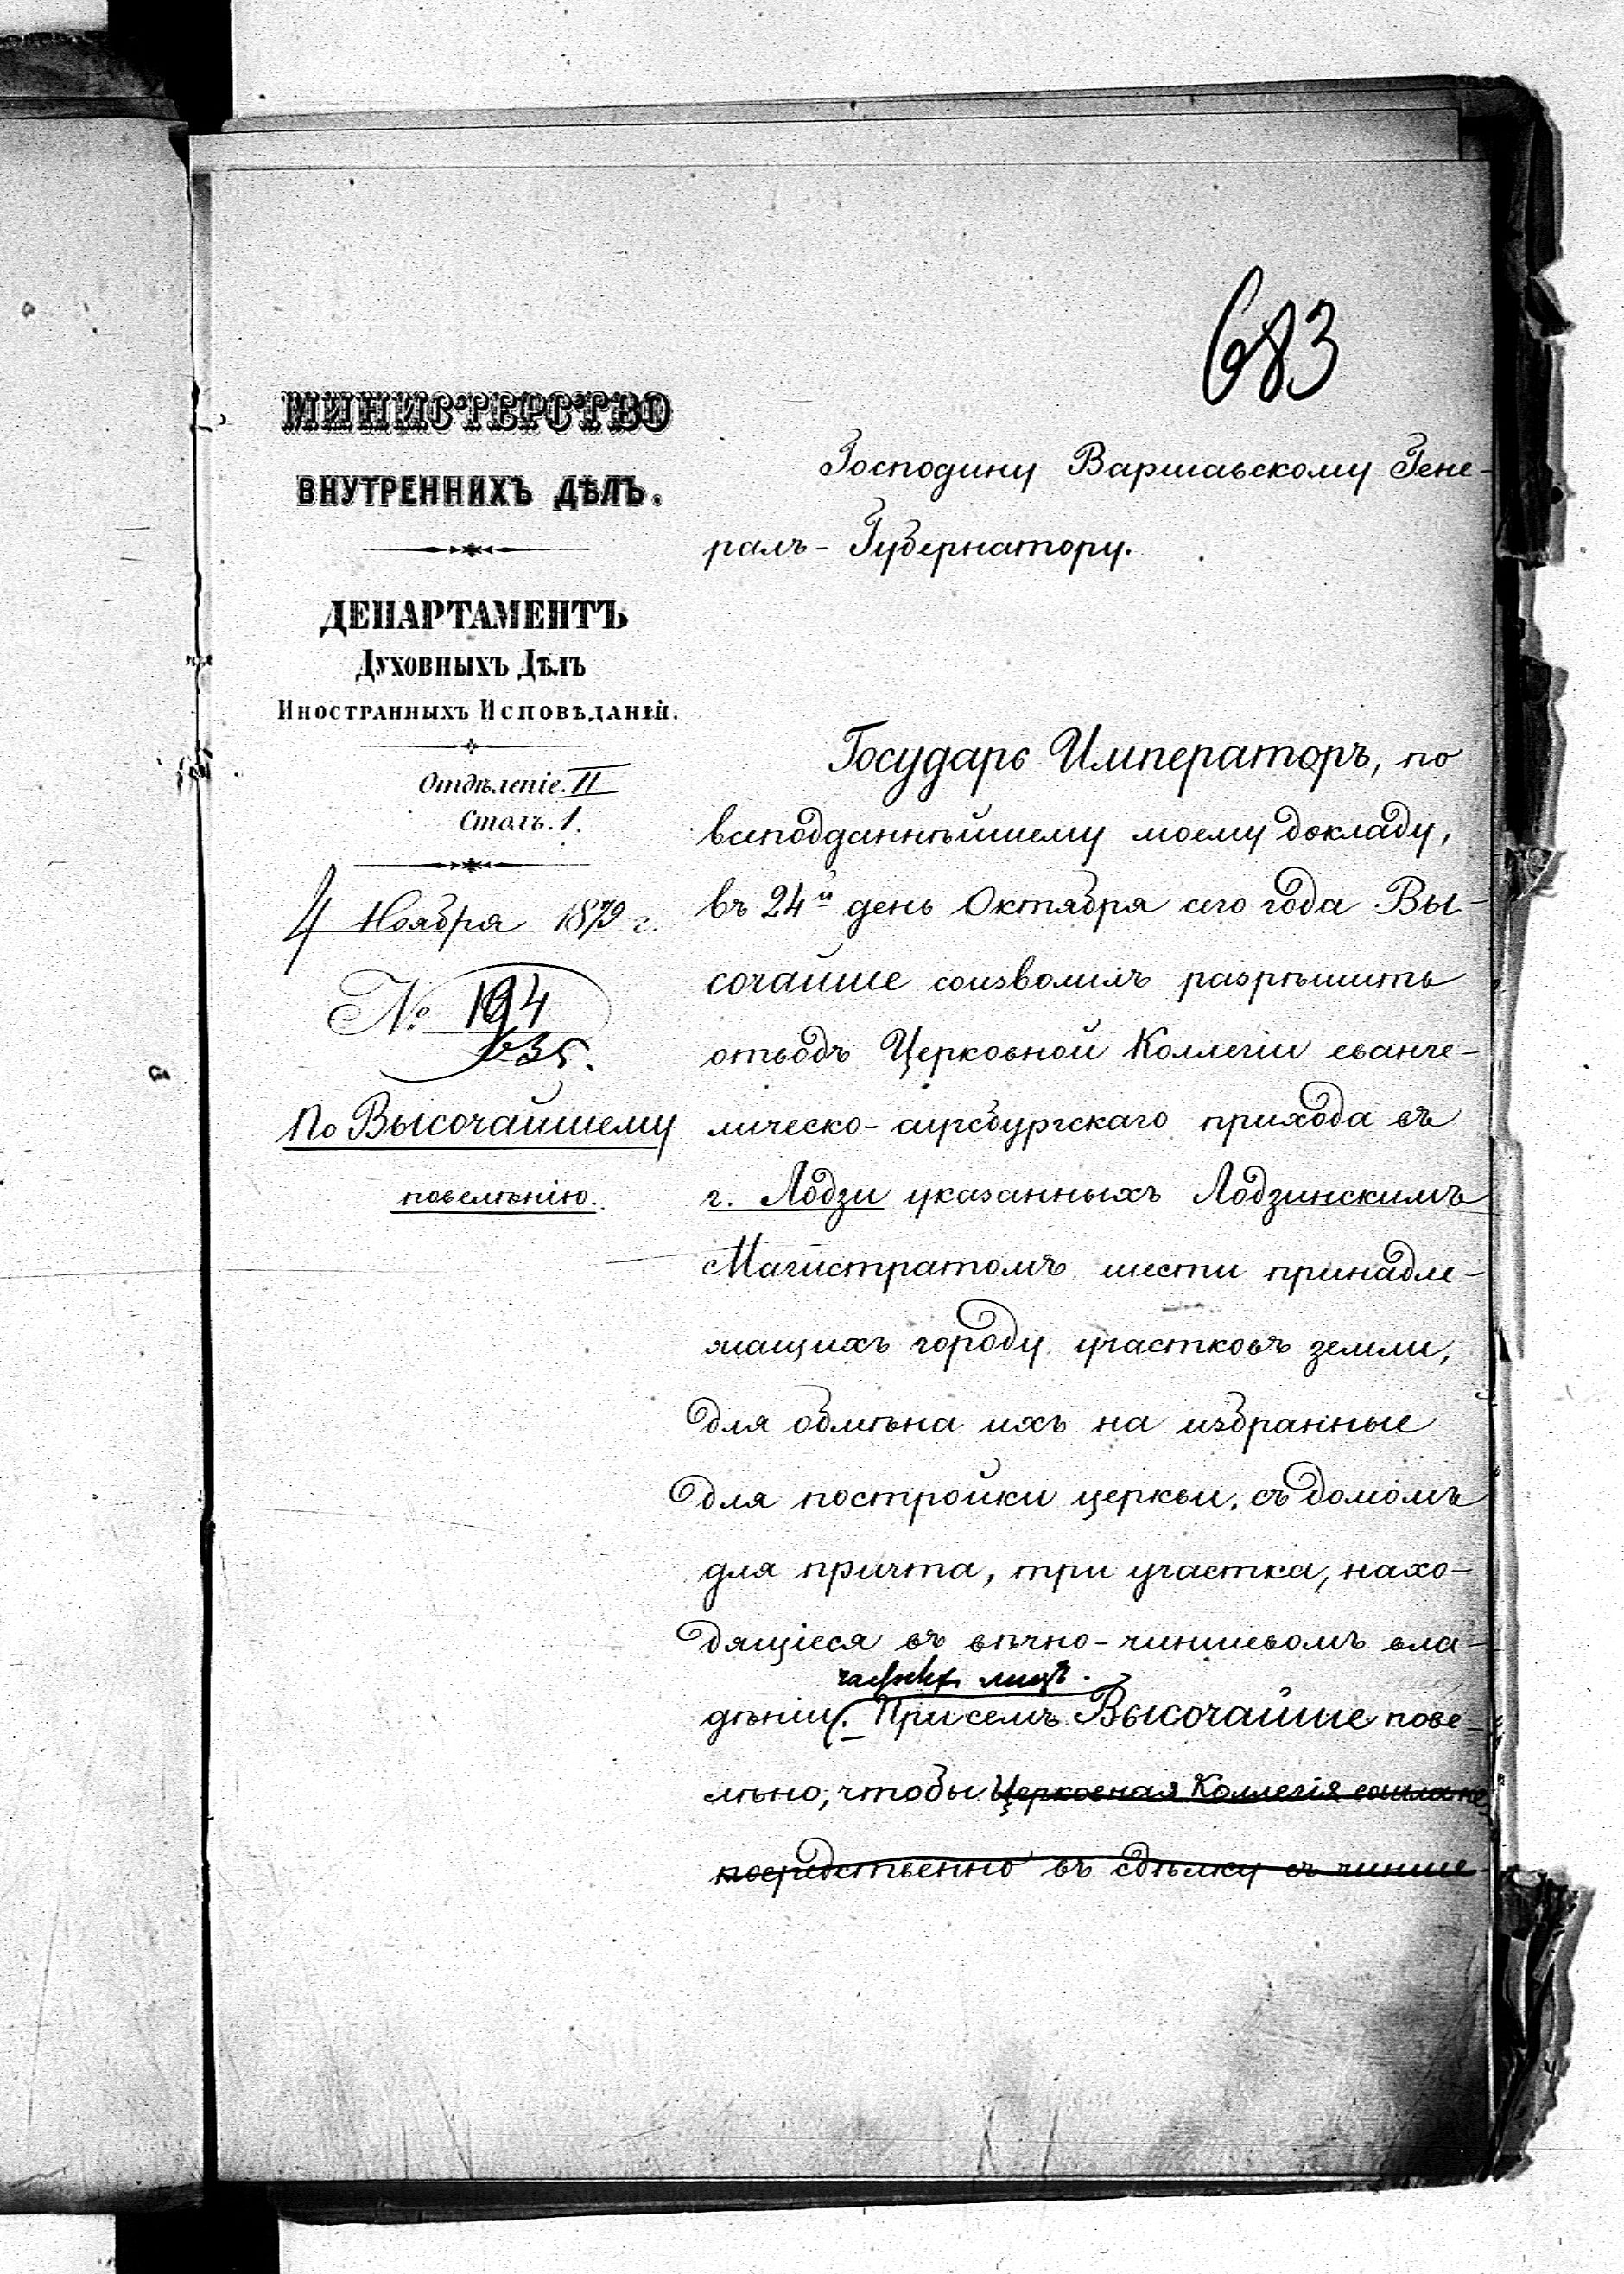 683
МИНИСТЕРСТВО
ВНУТРЕННИХЪ ДѢЛЪ.
ДЕПАРТАМЕНТЪ
Духовныхъ Дѣлъ
Иностранныхъ Исповѣданій.
Отдѣленіе. II
Столъ. 1.
4 Ноября 1879 г.
№ 194
635.
По Высочайшему
повелѣнію.
Господину Варшавскому Гене-
ралъ-Губернатору.
Государь Императоръ, по
всеподданнѣйшему моему докладу,
въ 24й день Октября сего года Вы-
сочайше соизволилъ разрѣшить
отводъ Церковной Коллегіи еванге-
лическо-аугсбургскаго прихода въ
г. Лодзи указанныхъ Лодзинскимъ
Магистратомъ шести принадле-
жащихъ городу участковъ земли,
для обмѣна ихъ на избранные
для постройки церкви, съ домомъ
для причта, три участка, нахо-
дящіеся въ вѣчно-чиншевомъ вла-
частныхъ лицъ.
дѣніи. При семъ Высочайше пове-
лѣно, чтобы Церковная Коллегія вошла не-
посредственно въ сдѣлку съ чинше-